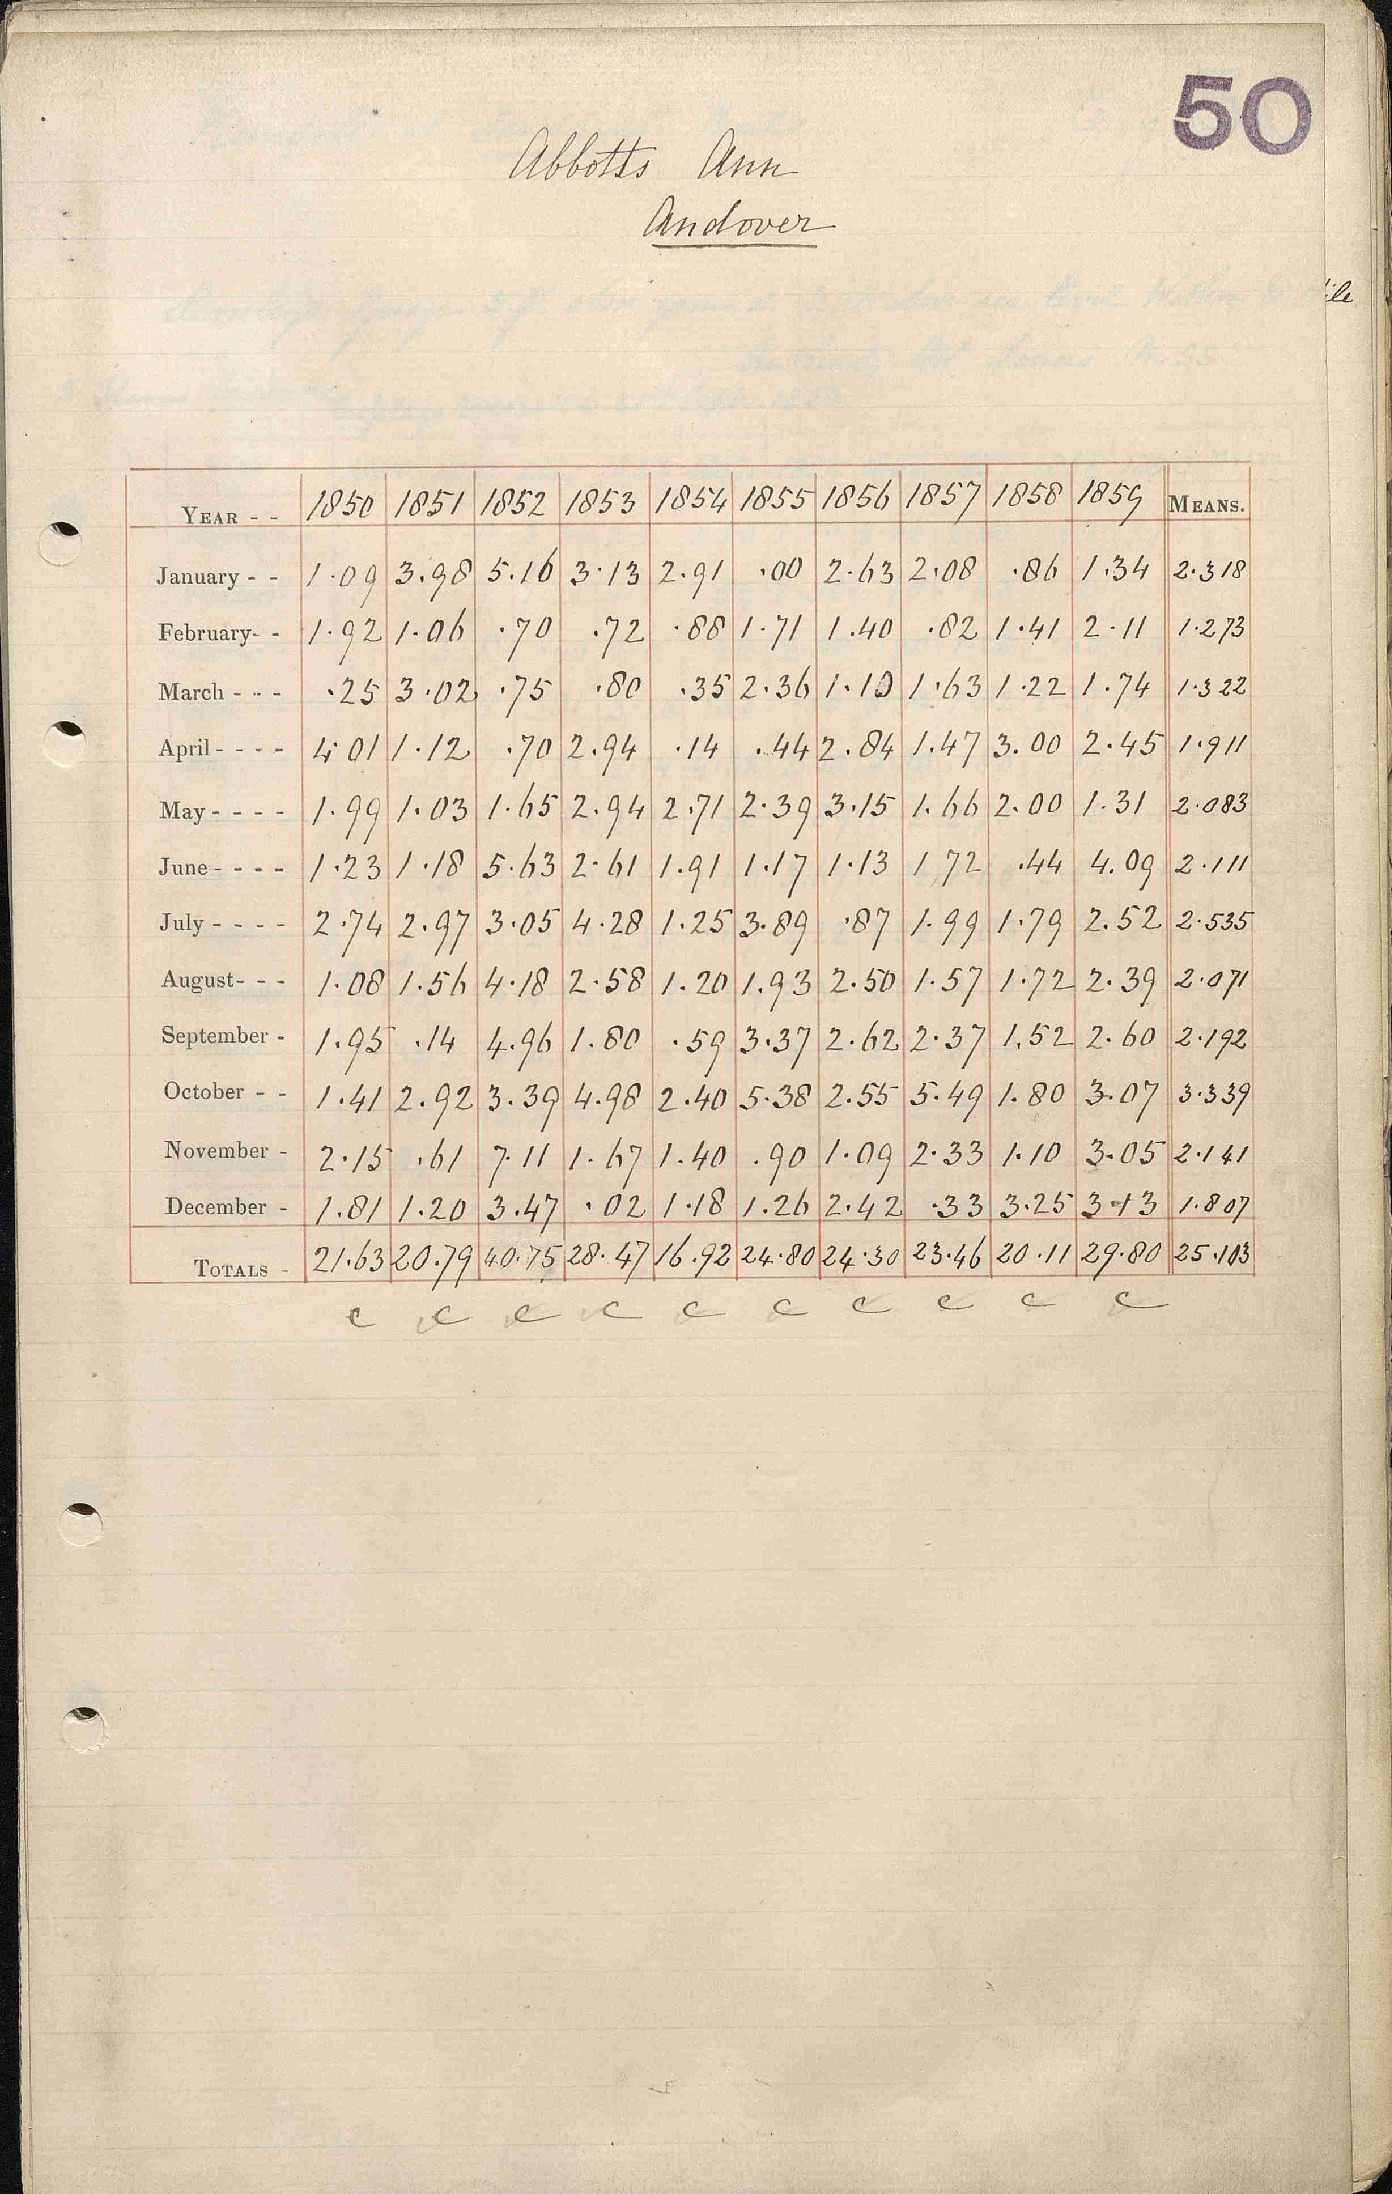 50
Abbotts Ann
Andover
ile
YEAR - - 1850 1851 1852 1853 1854 1855 1856 1857 1858 1859 MEANS.
January - - 1.09 3.98 5.16 3.13 2.91 .00 2.63 2.08 .86 1.34 2.318
February- - 1.92 1.06 .70 .72 .88 1.71 1.40 .82 1.41 2.11 1.273
March - - - .25 3.02 .75 .80 .35 2.36 1.10 1.63 1.22 1.74 1.322
April - - - - 4.01 1.12 .70 2.94 .14 .44 2.84 1.47 3.00 2.45 1.911
May - - - - 1.99 1.03 1.65 2.94 2.71 2.39 3.15 1.66 2.00 1.31 2.083
June - - - - 1.23 1.18 5.63 2.61 1.91 1.17 1.13 1.72 .44 4.09 2.111
July - - - - 2.74 2.97 3.05 4.28 1.25 3.89 .87 1.99 1.79 2.52 2.535
August- - - 1.08 1.56 4.18 2.58 1.20 1.93 2.50 1.57 1.72 2.39 2.071
September - 1.95 .14 4.96 1.80 .59 3.37 2.62 2.37 1.52 2.60 2.192
October - - 1.41 2.92 3.39 4.98 2.40 5.38 2.55 5.49 1.80 3.07 3.339
November - 2.15 .61 7.11 1.67 1.40 .90 1.09 2.33 1.10 3.05 2.141
December - 1.81 1.20 3.47 .02 1.18 1.26 2.42 .33 3.25 3.13 1.807
TOTALS - 21.63 20.79 40.75 28.47 16.92 24.80 24.30 23.46 20.11 29.80 25.103
c c c c c c c c c c